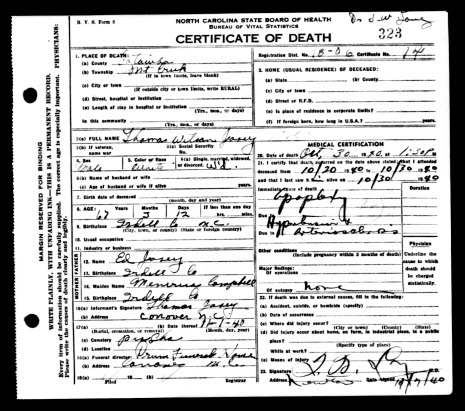 Dr J. W.
B. V. S. Form 8
NORTH CAROLINA STATE BOARD OF HEALTH
BUREAU OF VITAL STATISTICS
CERTIFICATE OF DEATH
323
1. PLACE OF DEATH:
Registration Dist. No. Certificate No. 14
(a) County Catawba
(b) Township Mt Creek
(If in town limits, leave blank)
(c) City or town
(If outside city or town limits, write RURAL)
(d) Street, hospital or institution
(e) Length of stay in hospital or institution
(Yrs., mos., or days)
In this community
(Yrs., mos., or days)
2. HOME (USUAL RESIDENCE) OF DECEASED:
(a) State (b) County
(c) City or town
(d) Street or R.F.D.
(e) Is place of residence in corporate limits?
(f) If foreign born, how long in U.S.A.? years
3 (a) FULL NAME Thomas Wilson Josey
3 (b) If veteran, name war 3 (c) Social Security No.
4. Sex Male 5. Color or Race White 6 (a) Single, married, widowed, or divorced, Wd.
(b) Name of husband or wife
(c) Age of husband or wife if alive years
7. Birth date of deceased
(month, day and year)
8. AGE: Years Months Days If less than one day
67 3 12 hrs. min.
9. Birthplace Iredell Co N.C.
(City, town, or county) (State or foreign country)
10. Usual occupation
11. Industry or business
FATHER
12. Name Ed Josey
13. Birthplace Iredell Co
MOTHER
14. Maiden Name Campbell
15. Birthplace Iredell Co
16 (a) Informant's Signature Thomas Josey
(b) Address Conover N.C.
17 (a) (b) Date thereof 11-1-40
(Burial, cremation, or removal) (Month) (Day) (Year)
(c) Cemetery
(d) Location
18 (a) Funeral director Drum Funeral Home
(b) Address Conover N.C.
19 (a) Filed 19 Registrar
MEDICAL CERTIFICATION
20. Date of Death Oct 30 1940 at 1:30 P m.
21. I certify that death occurred on the above date; that I attended
deceased from 10/30 1940 to 10/30 1940
and that I last saw him alive on 10/30 1940
Immediate cause of death Duration
apoplexy
Due to Hypertension &
Due to Arteriosclerosis
Other conditions
(Include pregnancy within 3 months of death)
Major findings:
Of operations
Of autopsy None
Physician
Underline the cause to which death should be charged statistically.
22. If death was due to external causes, fill in the following:
(a) Accident, suicide, or homicide (specify)
(b) Date of occurrence
(c) Where did injury occur?
(City or town) (County) (State)
(d) Did injury occur in or about home, on farm, in industrial place, in a public place?
(Specify type of place)
While at work?
(e) Means of injury
23. Signature
Address Newton Date signed 11/7/40
MARGIN RESERVED FOR BINDING
WRITE PLAINLY, WITH UNFADING INK—THIS IS A PERMANENT RECORD.
Every item of information should be carefully supplied.
Please write the causes of death clearly and legibly.
PHYSICIANS: